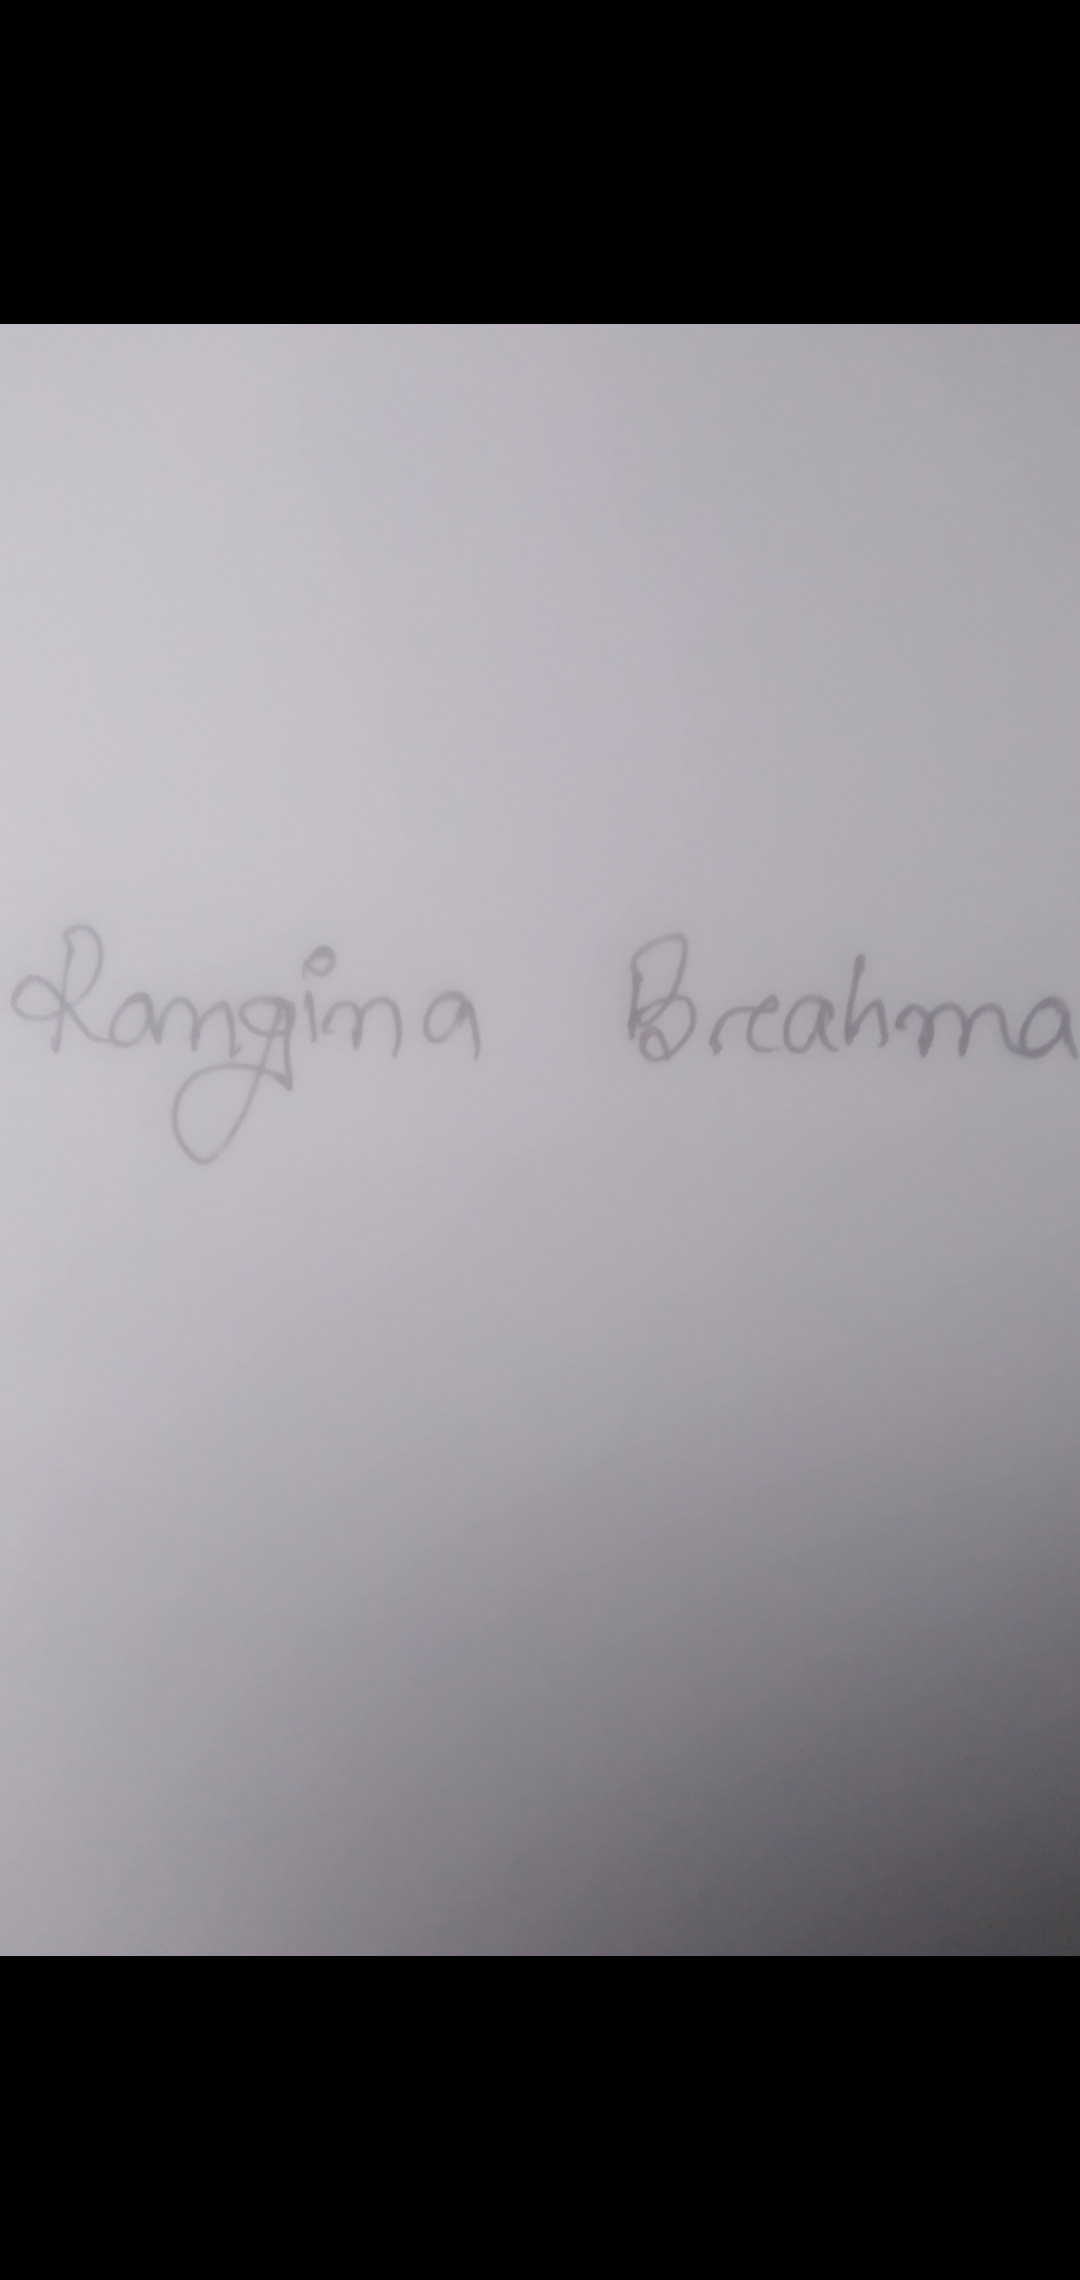 Rangina Brahma